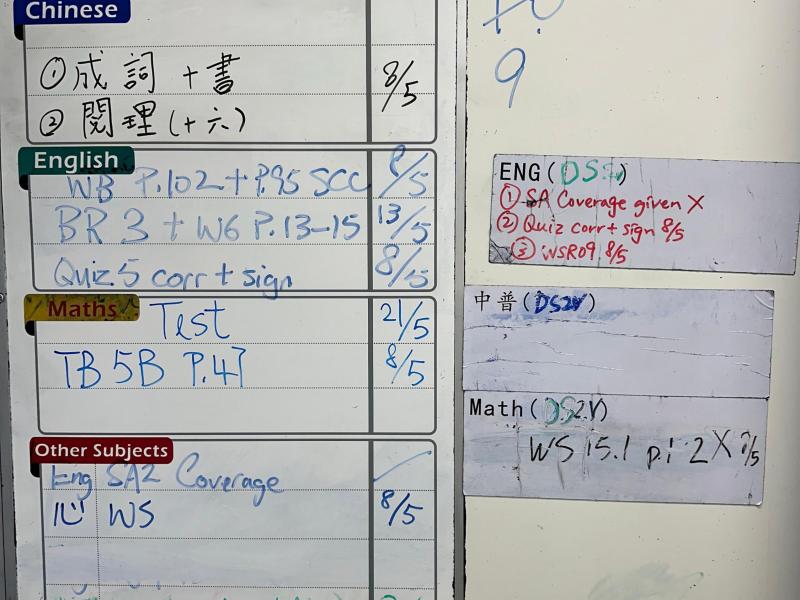 Chinese
① 成詞+書 8/5
② 閱理(+六)
English
WB P.102+P.95 SCC 8/5
BR 3 + W6 P.13-15 13/5
Quiz 5 corr + sign 8/5
Maths
Test 21/5
TB 5B P.47 8/5
Other Subjects
Eng SA2 Coverage ✓
心 WS 8/5
9
ENG(DS2V)
① SA Coverage given X
② Quiz corr + sign 8/5
③ WSR09 8/5
中普(DS2V)
Math(DS2V)
WS 15.1 p.1 2X /5